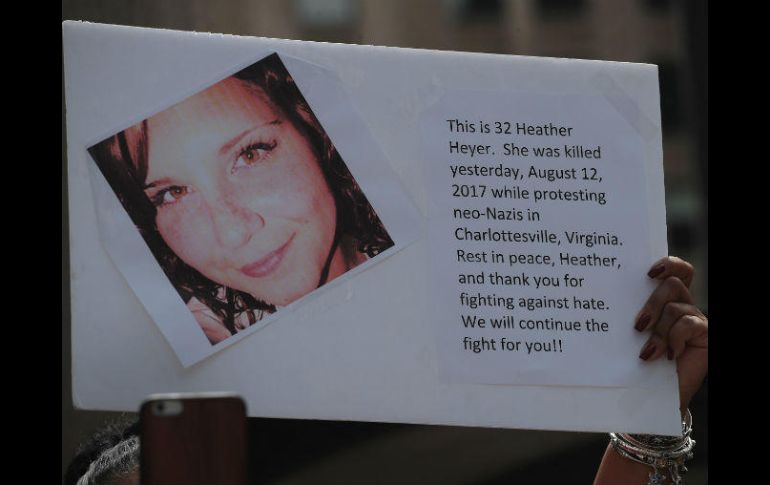 This is 32 Heather
Heyer.  She was killed
yesterday, August 12,
2017 while protesting
neo-Nazis in
Charlottesville, Virginia.
Rest in peace, Heather,
and thank you for
fighting against hate.
We will continue the
fight for you!!